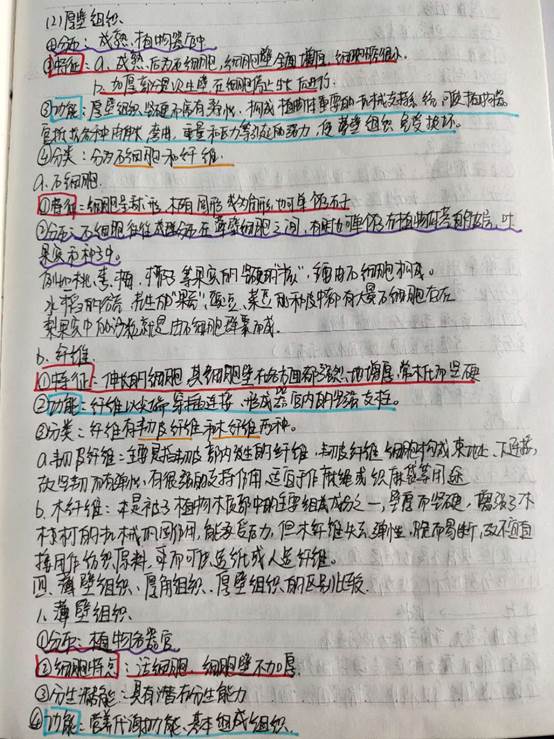 (2)厚壁组织.
①分布：成熟植物器官中
②特征：a.成熟后为死细胞,细胞壁全面增厚,细胞腔很小.
b.加厚部分是次生壁在细胞停止生长后进行.
③功能：厚壁组织坚硬不富有弹性,构成植物体重要的机械支持系统,可使植物器
官抵抗各种由伸长、弯曲、重量和压力等引起的张力,使薄壁组织免受损坏。
④分类：分为石细胞和纤维.
a.石细胞
①特征：细胞呈球形、椭圆形或多角形,也可单个存在
②分布：石细胞往往成群分布在薄壁细胞之间,有时也可单个分布在植物的茎的皮层、叶
果实和种子中。
例如桃、李、梅、椰子等果实的坚硬的“核”,都由石细胞构成。
水稻的谷壳,花生的“果壳”,豌豆、菜豆的种皮中都有大量石细胞存在
梨果实中的沙粒就是由石细胞群集而成.
b.纤维.
①特征：伸长的细胞,其细胞壁在各方面都强烈地增厚,常木化而坚硬
②功能：纤维以尖端穿插连接,形成器官内的坚强支柱。
③分类：纤维有韧皮纤维和木纤维两种。
a.韧皮纤维：主要是指韧皮部内发生的纤维,韧皮纤维细胞构成束状,不连接,
故坚韧而有弹性,有很强的支持作用,适宜于作麻绳或织麻袋等用途
b.木纤维：木是被子植物木质部中的主要组成成分之一,壁厚而坚硬,增强了木
材的机械巩固作用,能承压力,但木纤维失去弹性,脆而易断,故不适宜
接用作纺织原料,来而可供造纸或人造纤维。
四、薄壁组织、厚角组织、厚壁组织的区别比较.
1.薄壁组织.
①分布：植物各器官
②细胞特点：活细胞、细胞壁不加厚.
③分生潜能：具有潜在分生能力
④功能：营养代谢功能、基本组成组织.